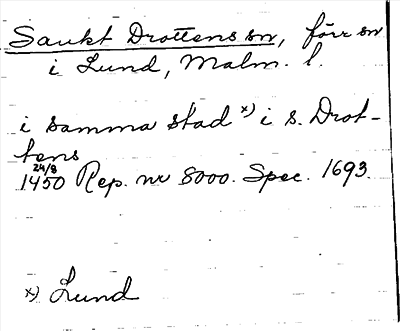 Sankt Drottens sn, förr sn
i Lund, Malm. l.
i samma stad x) i s. Drot-
tens
24/8
1450 Rep. nr 8000. Spec. 1693.
x) Lund